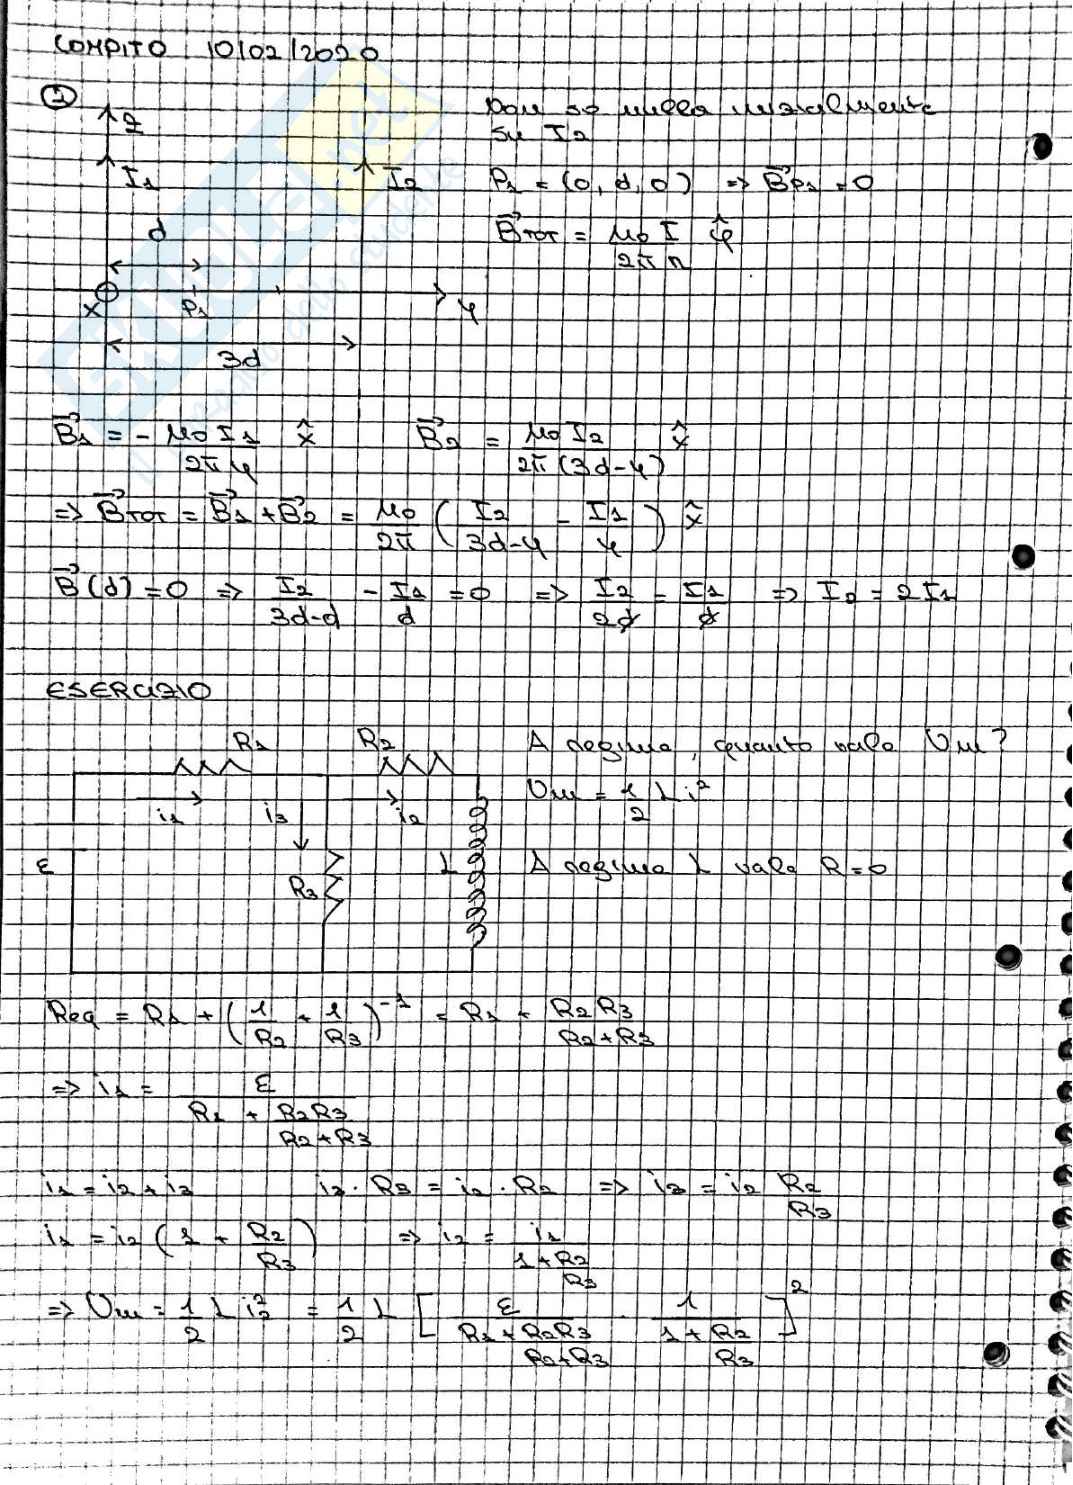 COMPITO 10/02/2020
①
z
Non so nulla inizialmente
su I2
I1
I2
P1 = (0, d, 0) => B⃗P1 = 0
d
B⃗TOT = μ0 I / 2π r φ̂
x
P1
y
3d
B⃗1 = - μ0 I1 / 2π y x̂
B⃗2 = μ0 I2 / 2π (3d-y) x̂
=> B⃗TOT = B⃗1 + B⃗2 = μ0 / 2π ( I2 / 3d-y - I1 / y ) x̂
B⃗(d) = 0 => I2 / 3d-d - I1 / d = 0 => I2 / 2d = I1 / d => I2 = 2I1
ESERCIZIO
R1
R2
A regime, quanto vale Um?
i1
i3
i2
Um = 1/2 L i²
ε
R3
L
A regime L vale R=0
Req = R1 + ( 1/R2 + 1/R3 )⁻¹ = R1 + R2 R3 / R2+R3
=> i1 = ε / R1 + R2R3 / R2+R3
i1 = i2 + i3
i3 · R3 = i2 · R2 => i3 = i2 R2 / R3
i1 = i2 ( 1 + R2 / R3 ) => i2 = i1 / 1+R2 / R3
=> Um = 1/2 L i2² = 1/2 L [ ε / R1+R2R3 / R2+R3 · 1 / 1+R2 / R3 ]²